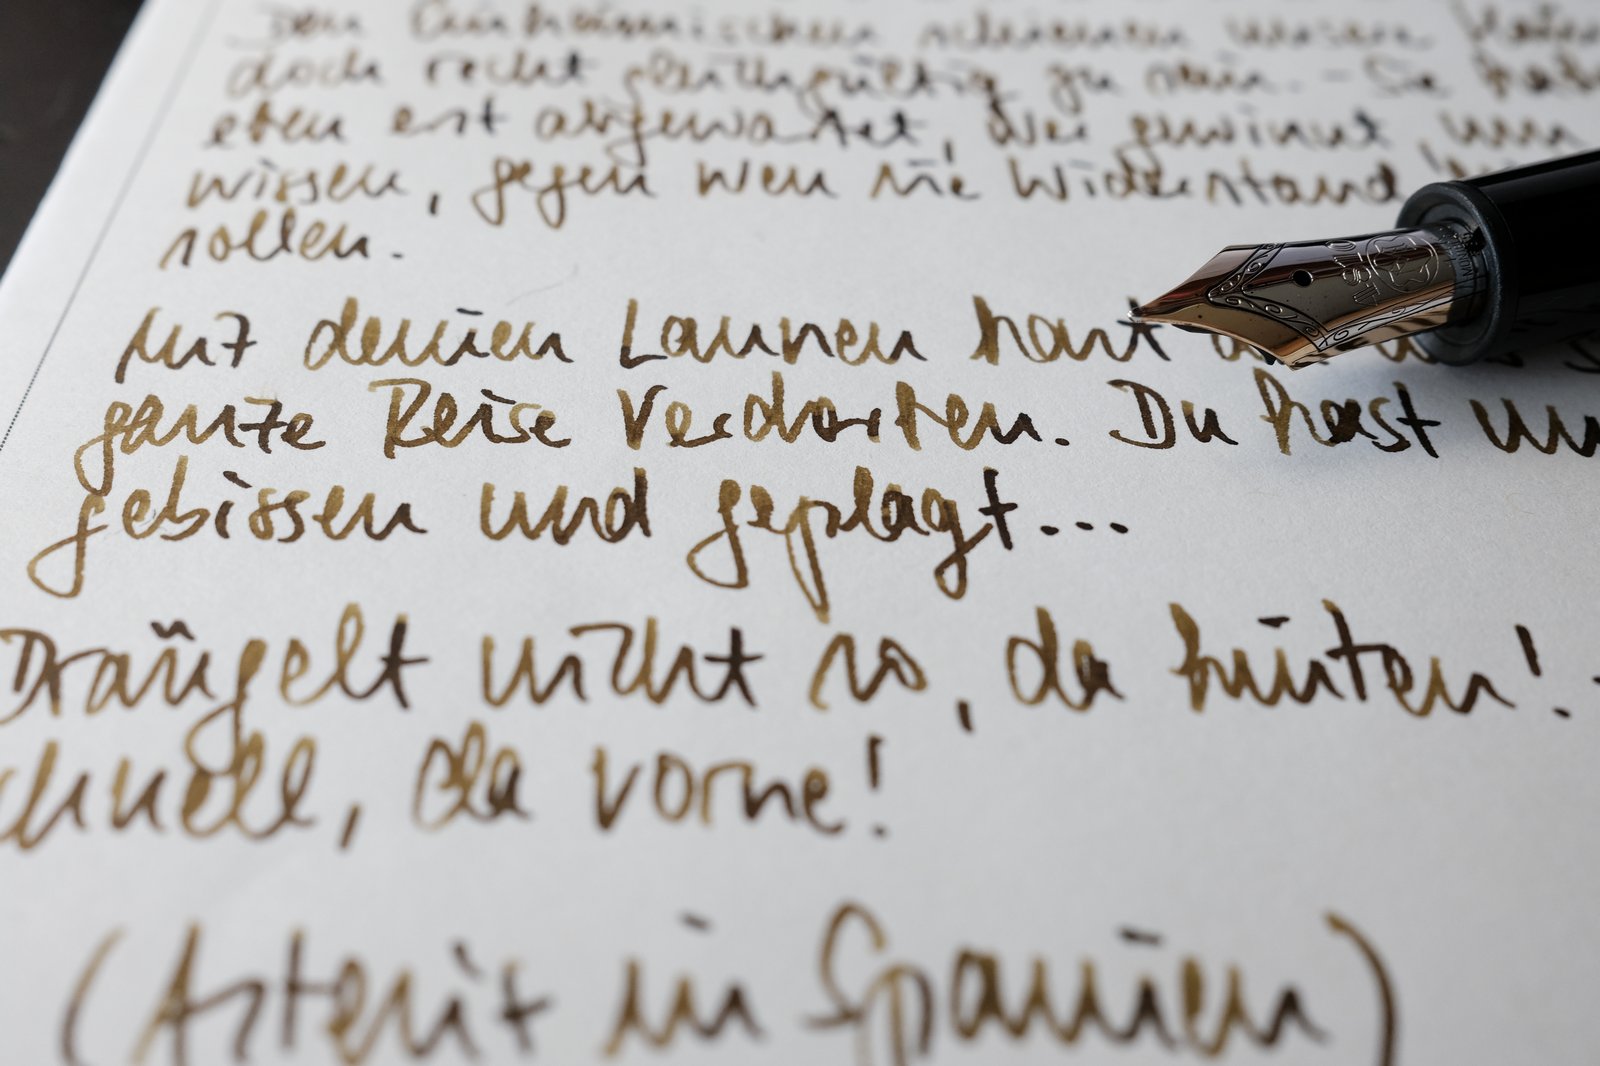 Den Einheimischen scheinen unsere
doch recht gleichgültig zu sein. – Sie
eben erst abgewartet, wer gewinnt, um
wissen, gegen wen sie Widerstand
sollen.
Mit deinen Launen hast
ganze Reise verdorben. Du hast
gebissen und geplagt...
Drängelt nicht so, da hinten!
chnell, da vorne!
(Asterix in Spanien)